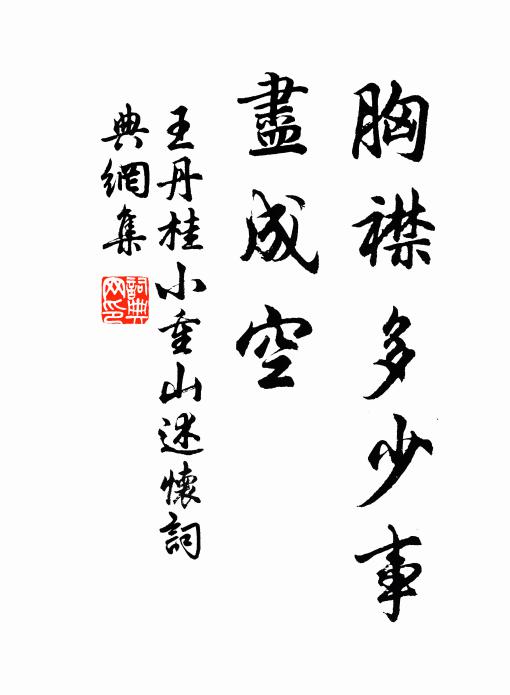 胸襟多少事
盡成空
王丹桂小重山述懷詞
典網集
詞典网印